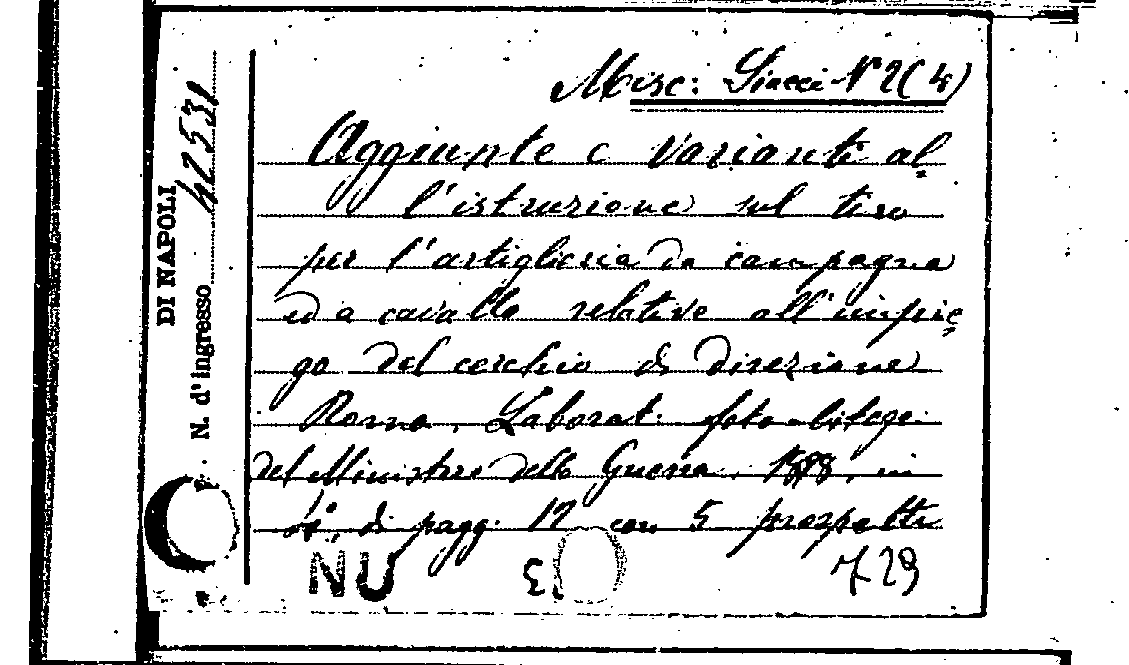 Misc: Siacci N° 2(4)
Aggiunte e Varianti al
l'istruzione sul tiro
per l'artiglieria da campagna
ed a cavallo relative all'impie
go del cerchio di direzione
Roma, Laborat: foto-litogr.
del Ministero della Guerra, 1888, in
di pagg. 17 con 5 prospetti
729
NU
DI NAPOLI
N. d'ingresso 42531